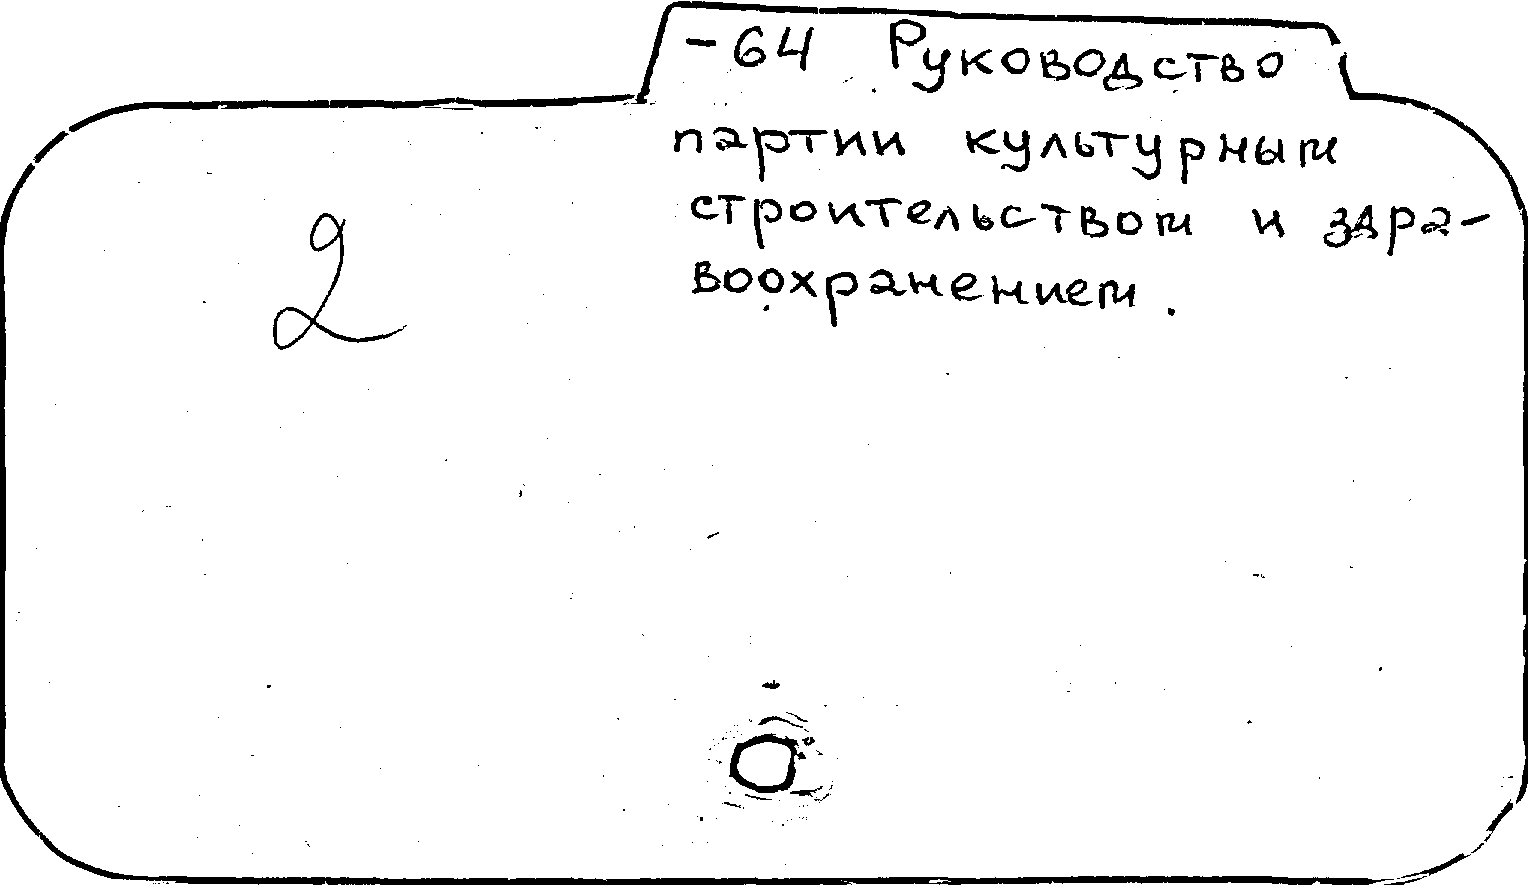 -64 Руководство
партии культурным
строительством и здра-
воохранением.
2